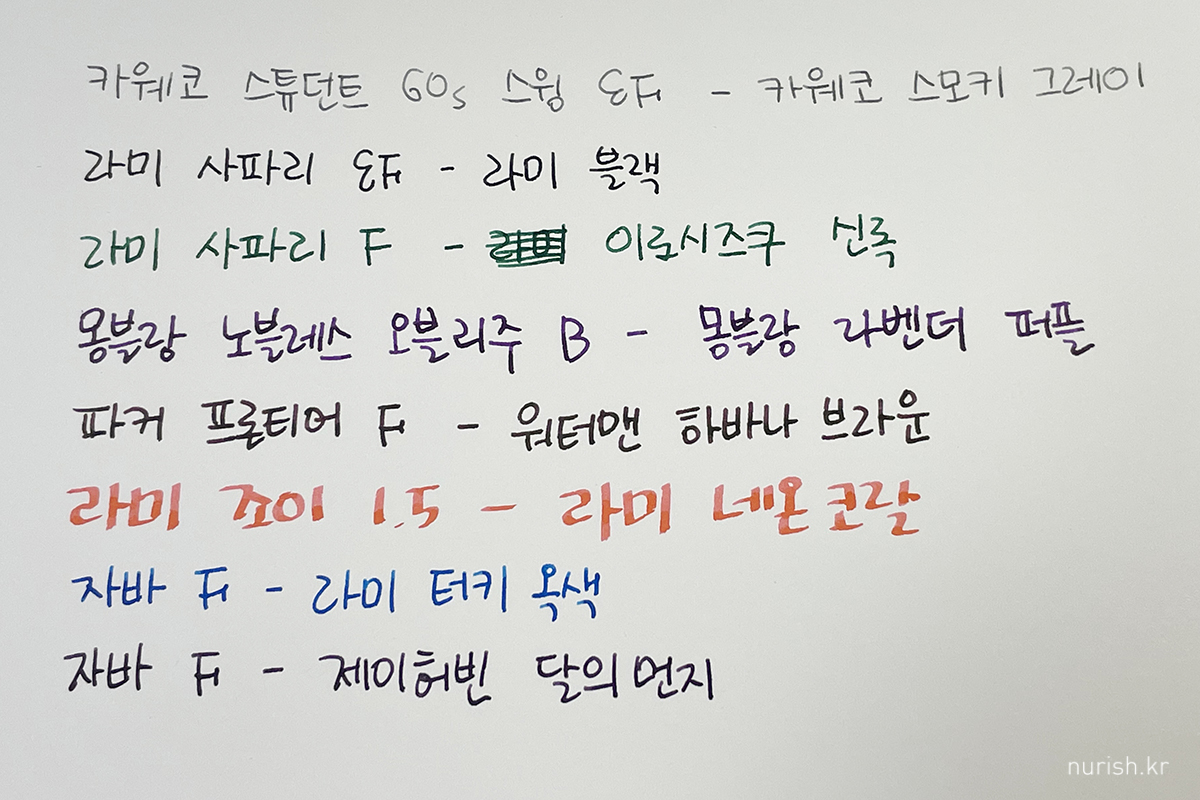 카웨코 스튜던트 60s 스윙 EF - 카웨코 스모키 그레이
라미 사파리 EF - 라미 블랙
라미 사파리 F - 이로시즈쿠 신록
몽블랑 노블레스 오블리주 B - 몽블랑 라벤더 퍼플
파커 프론티어 F - 워터맨 하바나 브라운
라미 조이 1.5 - 라미 네온 코랄
자바 F - 라미 터키 옥색
자바 F - 제이허빈 달의 먼지
nurish.kr